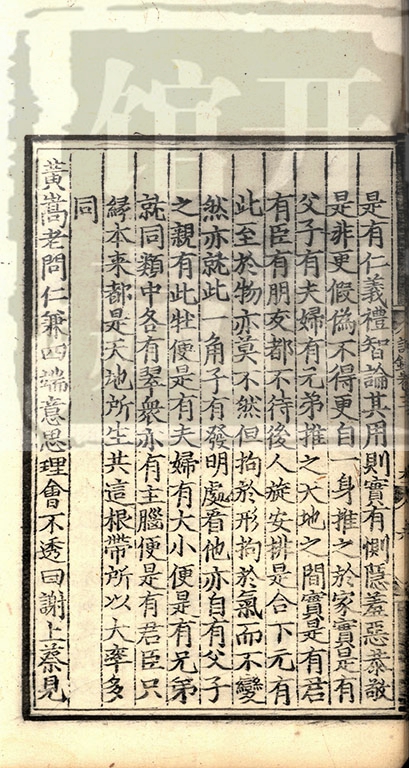 是有仁義禮智論其用則實有惻隱羞惡恭敬
是非更假偽不得更自一身推之於家實是有
父子有夫婦有兄弟推之天地之間實是有君
有臣有朋友都不待後人旋安排是合下元有
此至於物亦莫不然但拘於形拘於氣而不變
然亦就此一角子有發明處看他亦自有父子
之親有牝牡便是有夫婦有大小便是有兄弟
就同類中各有羣衆亦有主腦便是有君臣只
縁本来都是天地所生共這根帶所以大率多
同
黃嵩老問仁兼四端意思理會不透曰謝上蔡見